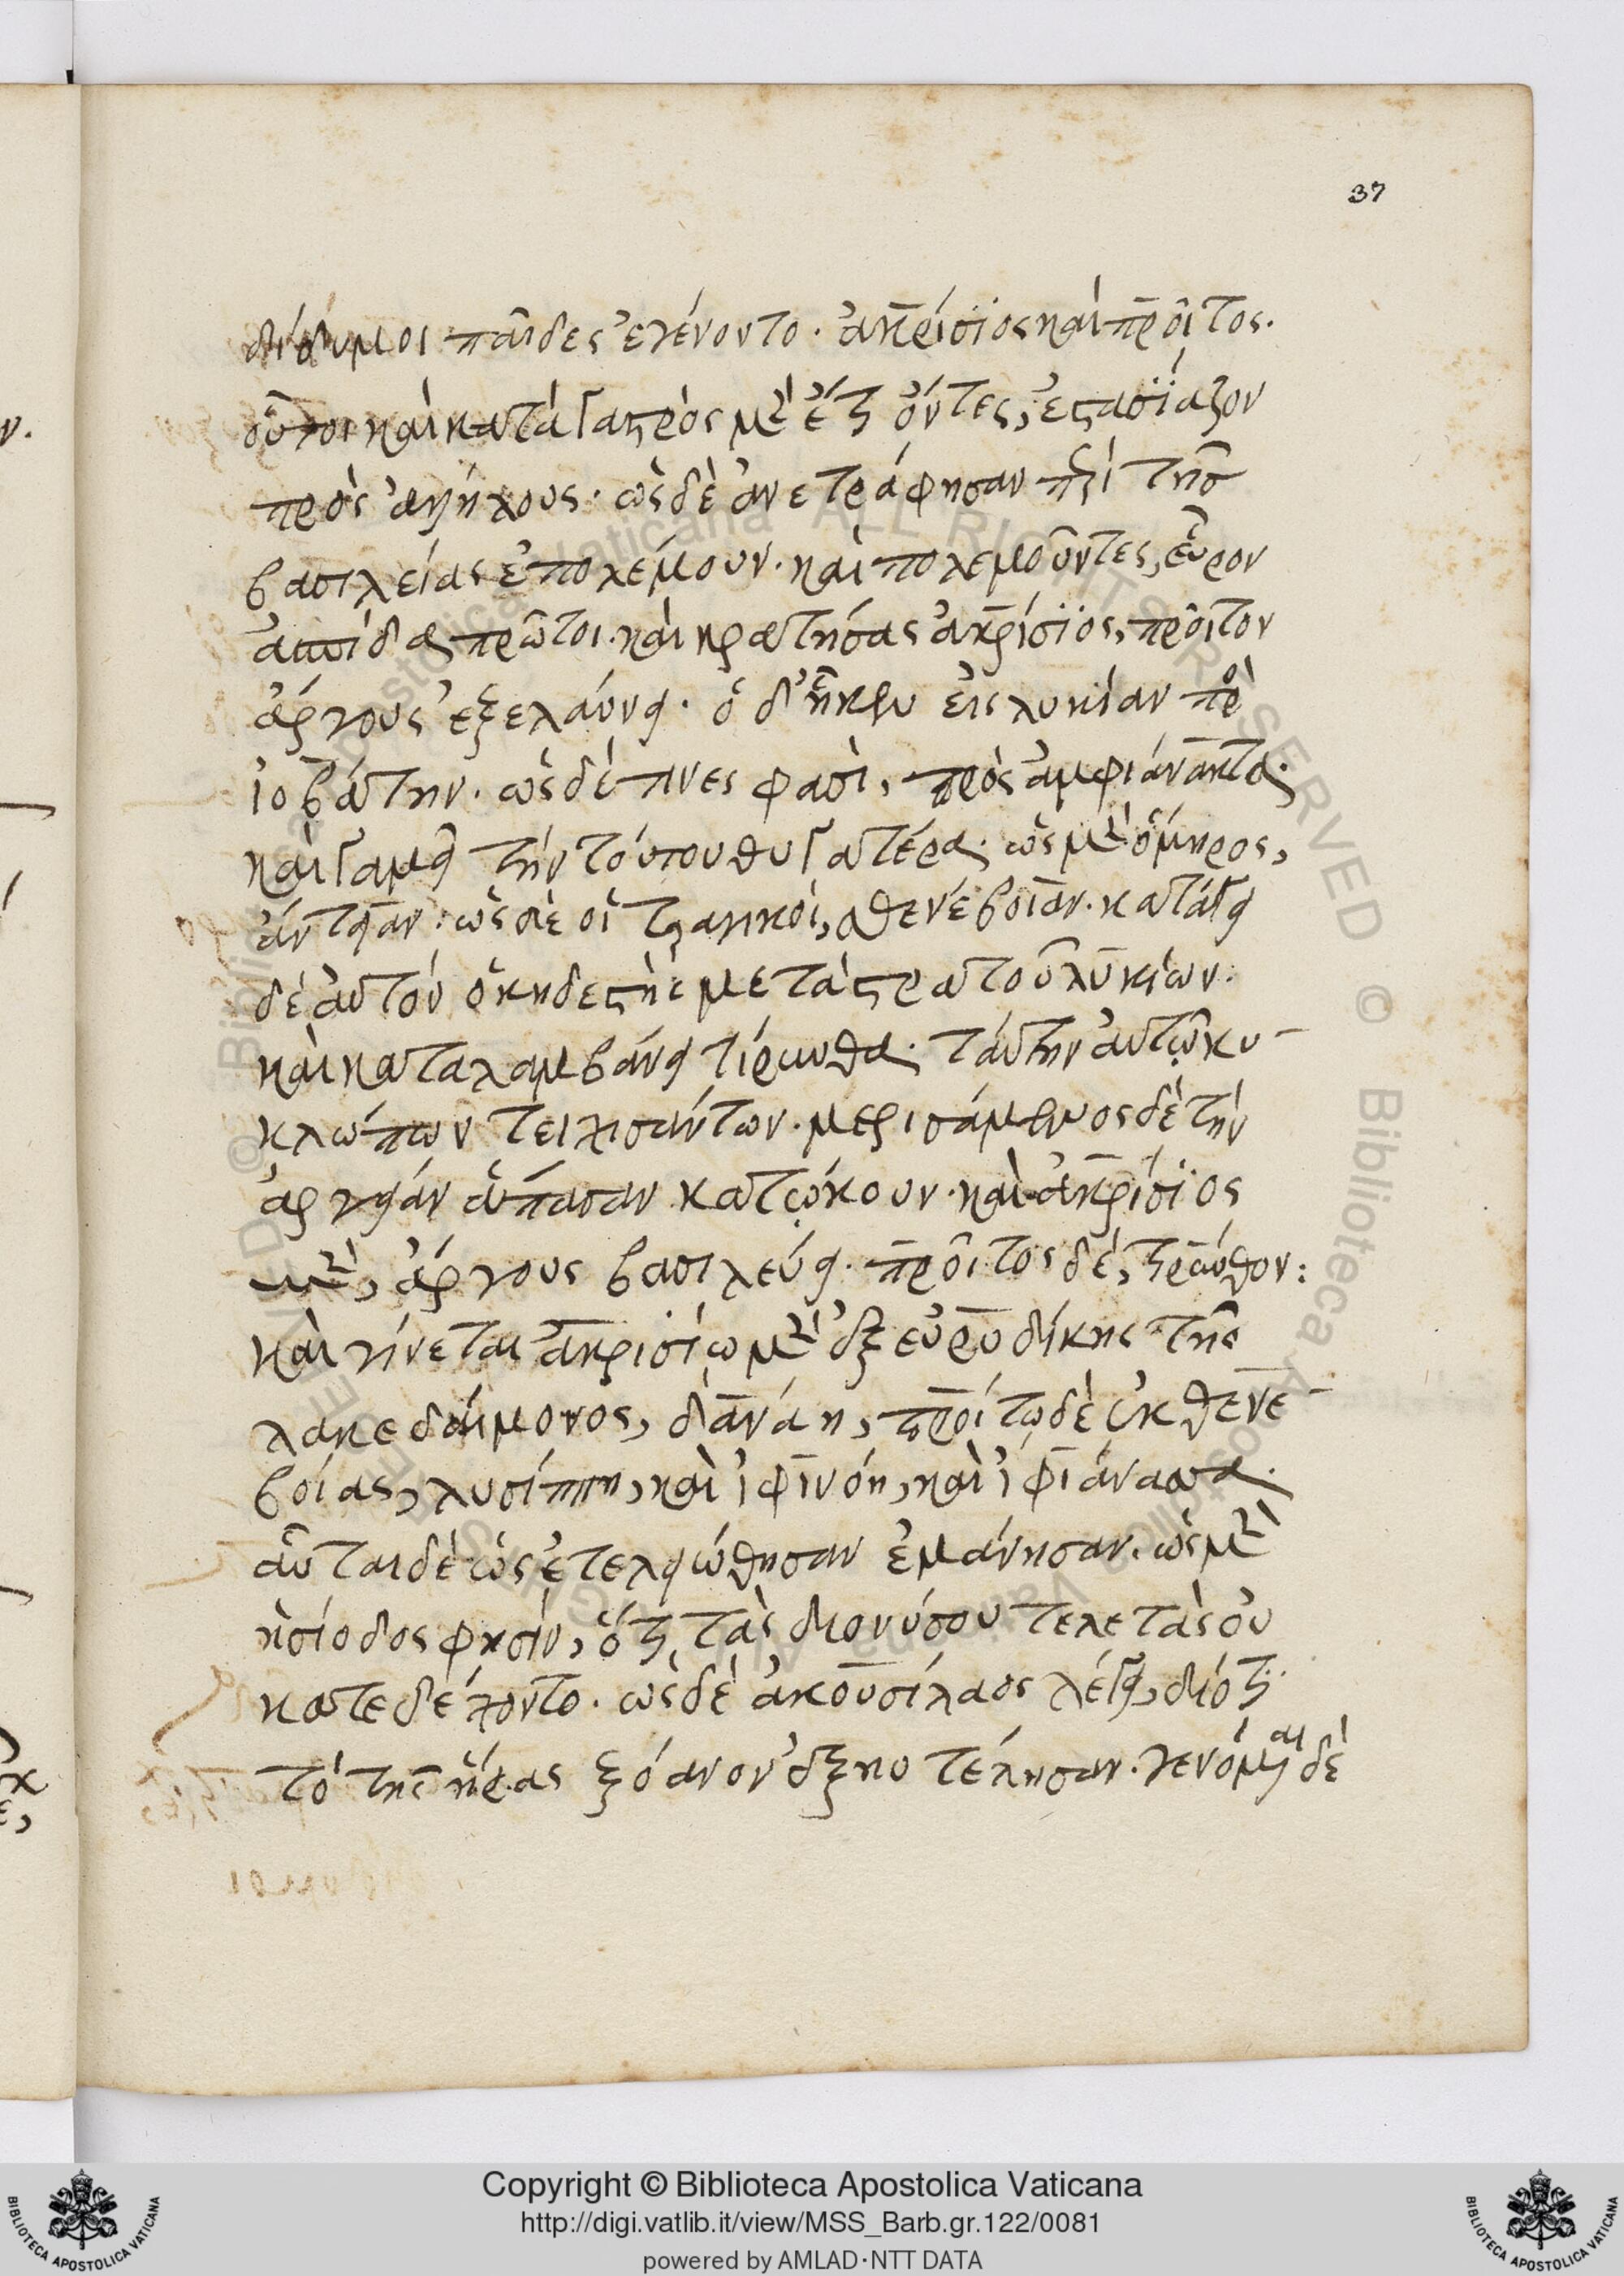 37
δίδυμοι παῖδες ἐγένοντο· ἀκρίσϊος καὶ προῖτος.
οὗτοι καὶ κατὰ γαστρὸς μὲν ἔτι ὄντες, ἐστασΐαζον
πρὸς ἀλλήλους· ὡς δὲ ἀνετράφησαν περὶ τῆς
βασιλείας ἐπολέμουν· καὶ πολεμοῦντες, εὗρον
ἀσπίδας πρῶτοι· καὶ κρατήσας ἀκρίσϊος, προῖτον
ἄργους ἐξελαύνει· ὁ δ' ἧκεν εἰς λυκίαν πρὸς
ἰοβάτην· ὡς δέ τινες φασὶ, πρὸς ἀμφιάνακτα·
καὶ γαμεῖ τὴν τούτου θυγατέρα· ὡς μὲν ὅμηρος,
ἄντειαν· ὡς δὲ οἱ τραγικοὶ, σθενέβοιαν· κατάγει
δὲ αὐτὸν ὁ κηδεστὴς μετὰ στρατοῦ λυκίων·
καὶ καταλαμβάνει τίρυνθα· ταύτην αὐτῷ κυ-
κλώπων τειχισάντων· μερισάμενος δὲ τὴν
ἀργείαν ἅπασαν κατῴκουν· καὶ ἀκρίσϊος
μὲν, ἄργους βασιλεύει· προῖτος δὲ, τίρυνθον:
καὶ γίνεται ἀκρισίω μὲν ἐξ εὐρυδίκης τῆς
λακεδαίμονος, δανάη, προίτω δὲ ἐκ σθενε-
βοίας, λυσίππη, καὶ ἰφινόη, καὶ ἰφιάνασσα·
αὗται δὲ ὡς ἐτελειώθησαν ἐμάνησαν· ὡς μὲν
ἡσίοδος φησὶν, ὅτι τὰς διονύσου τελετὰς οὐ
κατεδέχοντο· ὡς δὲ ἀκουσίλαος λέγει, διότι
τὸ τῆς ἥρας ξόανον ἐξηυτέλησαν· γενόμεναι δὲ
Copyright © Biblioteca Apostolica Vaticana
http://digi.vatlib.it/view/MSS_Barb.gr.122/0081
powered by AMLAD·NTT DATA